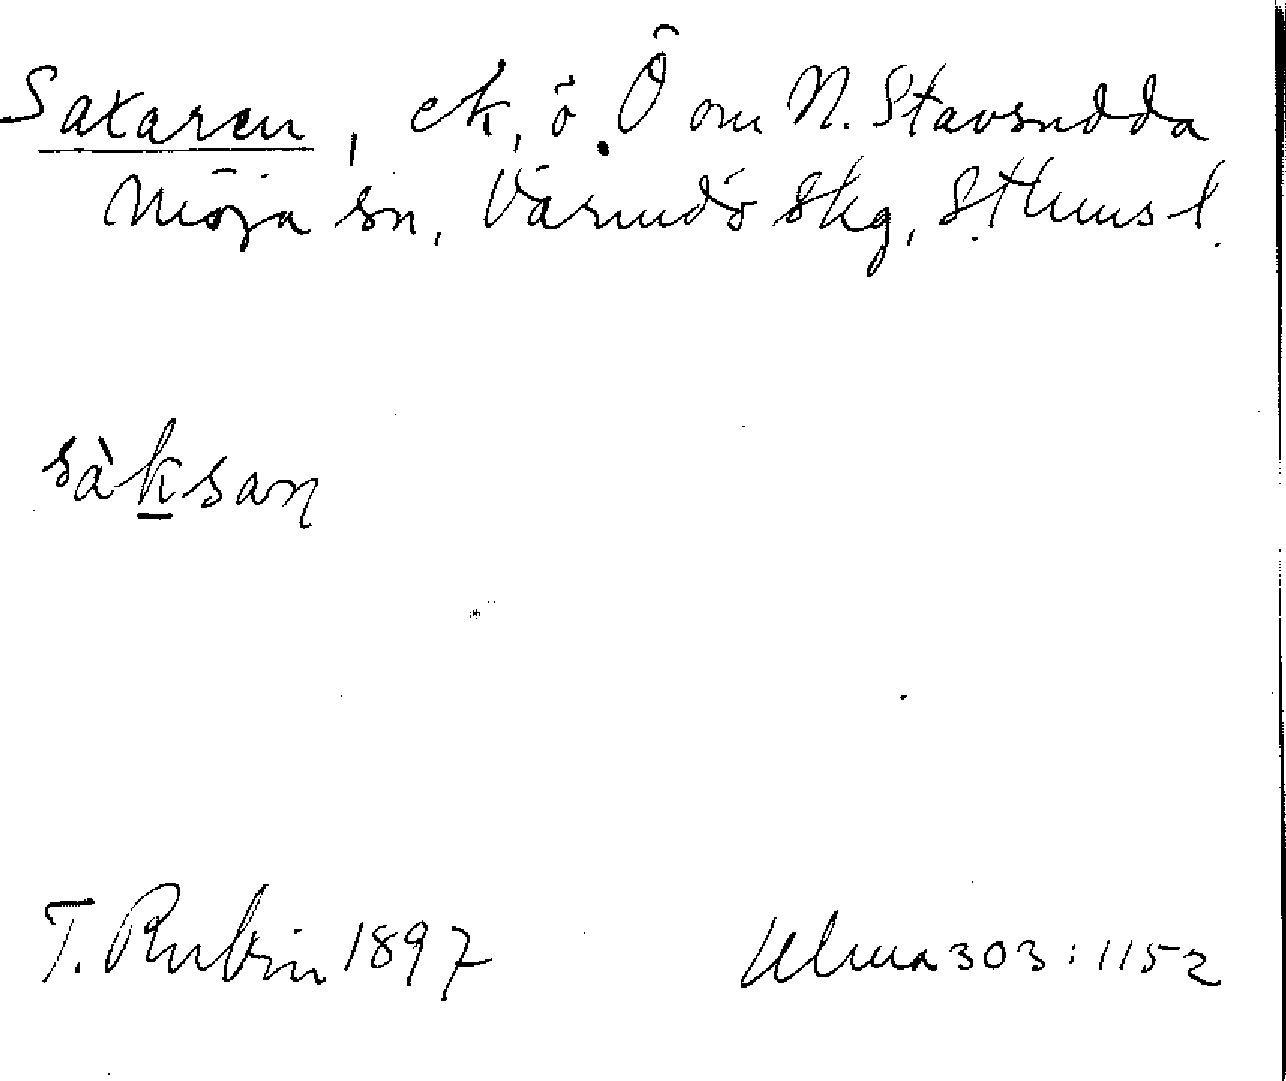 Saxaren, ek, ö. Ö om N. Stavsudda
Möja sn, Värmdö skg, Sthms l.
sàksaɳ
T. Rubin 1897
Ulma 303:1152